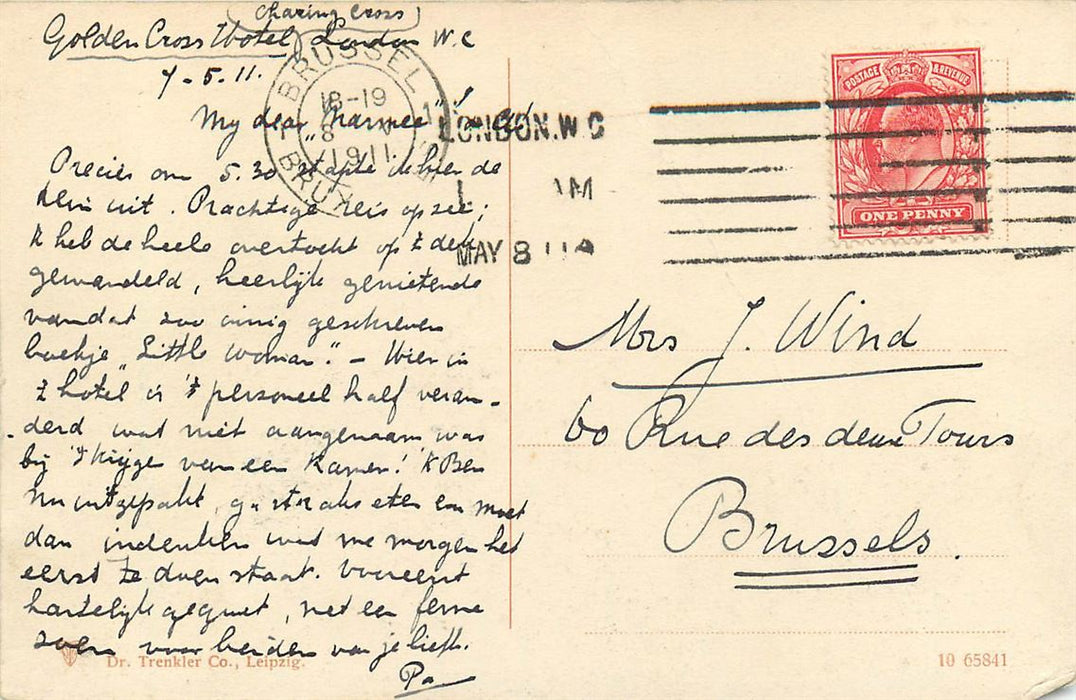 Charing Cross
Golden Cross Hotel, London W.C
7-5.11.
My dear "Marmee"
Precies om 5.30 stapte ik hier de
trein uit. Prachtige reis op zee;
'k heb de heele overtocht op 't dek
gewandeld, heerlijk genietende
van dat zoo innig geschreven
boekje "Little Woman". - Hier in
't hotel is 't personeel half veran-
-derd wat niet aangenaam was
bij 't krijgen van een kamer! 'k Ben
nu uitgepakt, ga straks eten en moet
dan indenken wat me morgen het
eerst te doen staat. Vooreerst
hartelijk gegroet, met een ferme
zoen voor beiden van je liefh.
Pa
Dr. Trenkler Co., Leipzig.
BRUSSEL 1
18-19
8
1911
BRUX
LONDON.W C
AM
MAY 8 11
POSTAGE & REVENUE
ONE PENNY
Mrs J. Wind
60 Rue des deux Tours
Brussels.
10 65841